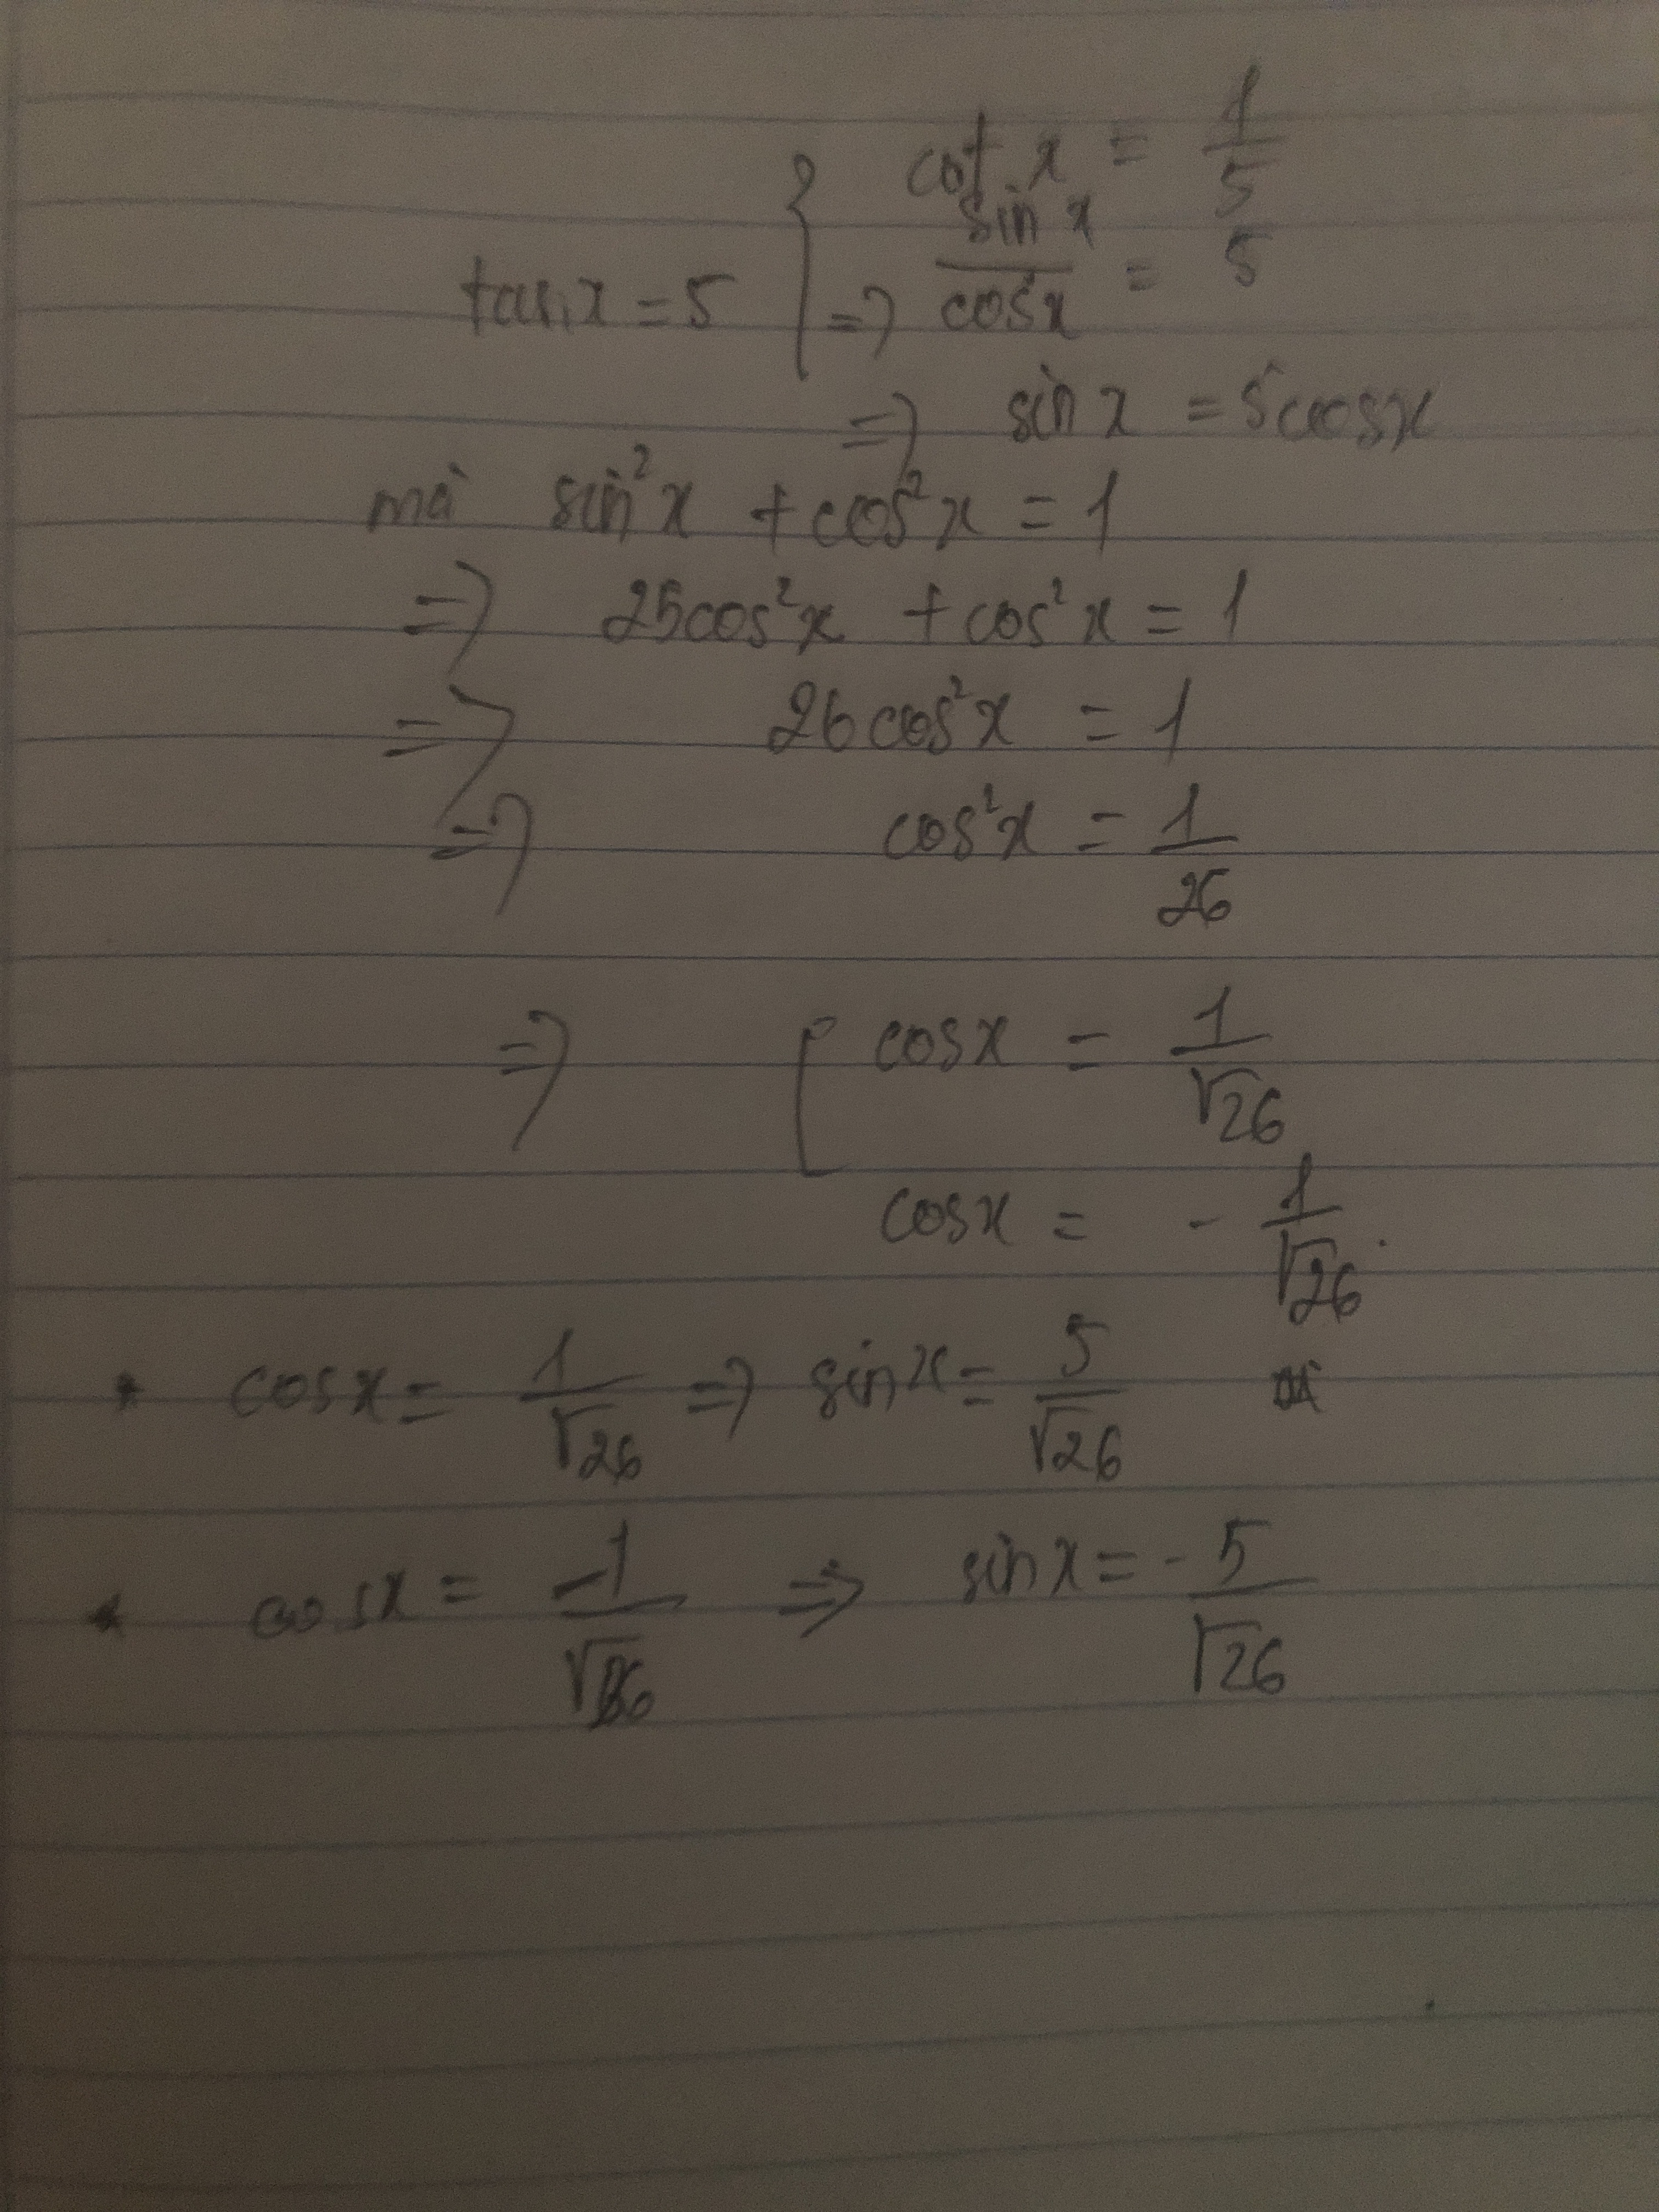 cot x = 1/5
tan x = 5 { => sin x / cos x = 5
=> sin x = 5cosx
mà sin²x + cos²x = 1
=> 25cos²x + cos²x = 1
=> 26cos²x = 1
=> cos²x = 1/26
=> [ cosx = 1/√26
cosx = - 1/√26.
* cosx = 1/√26 => sinx = 5/√26
* cosx = -1/√26 => sinx = - 5/√26